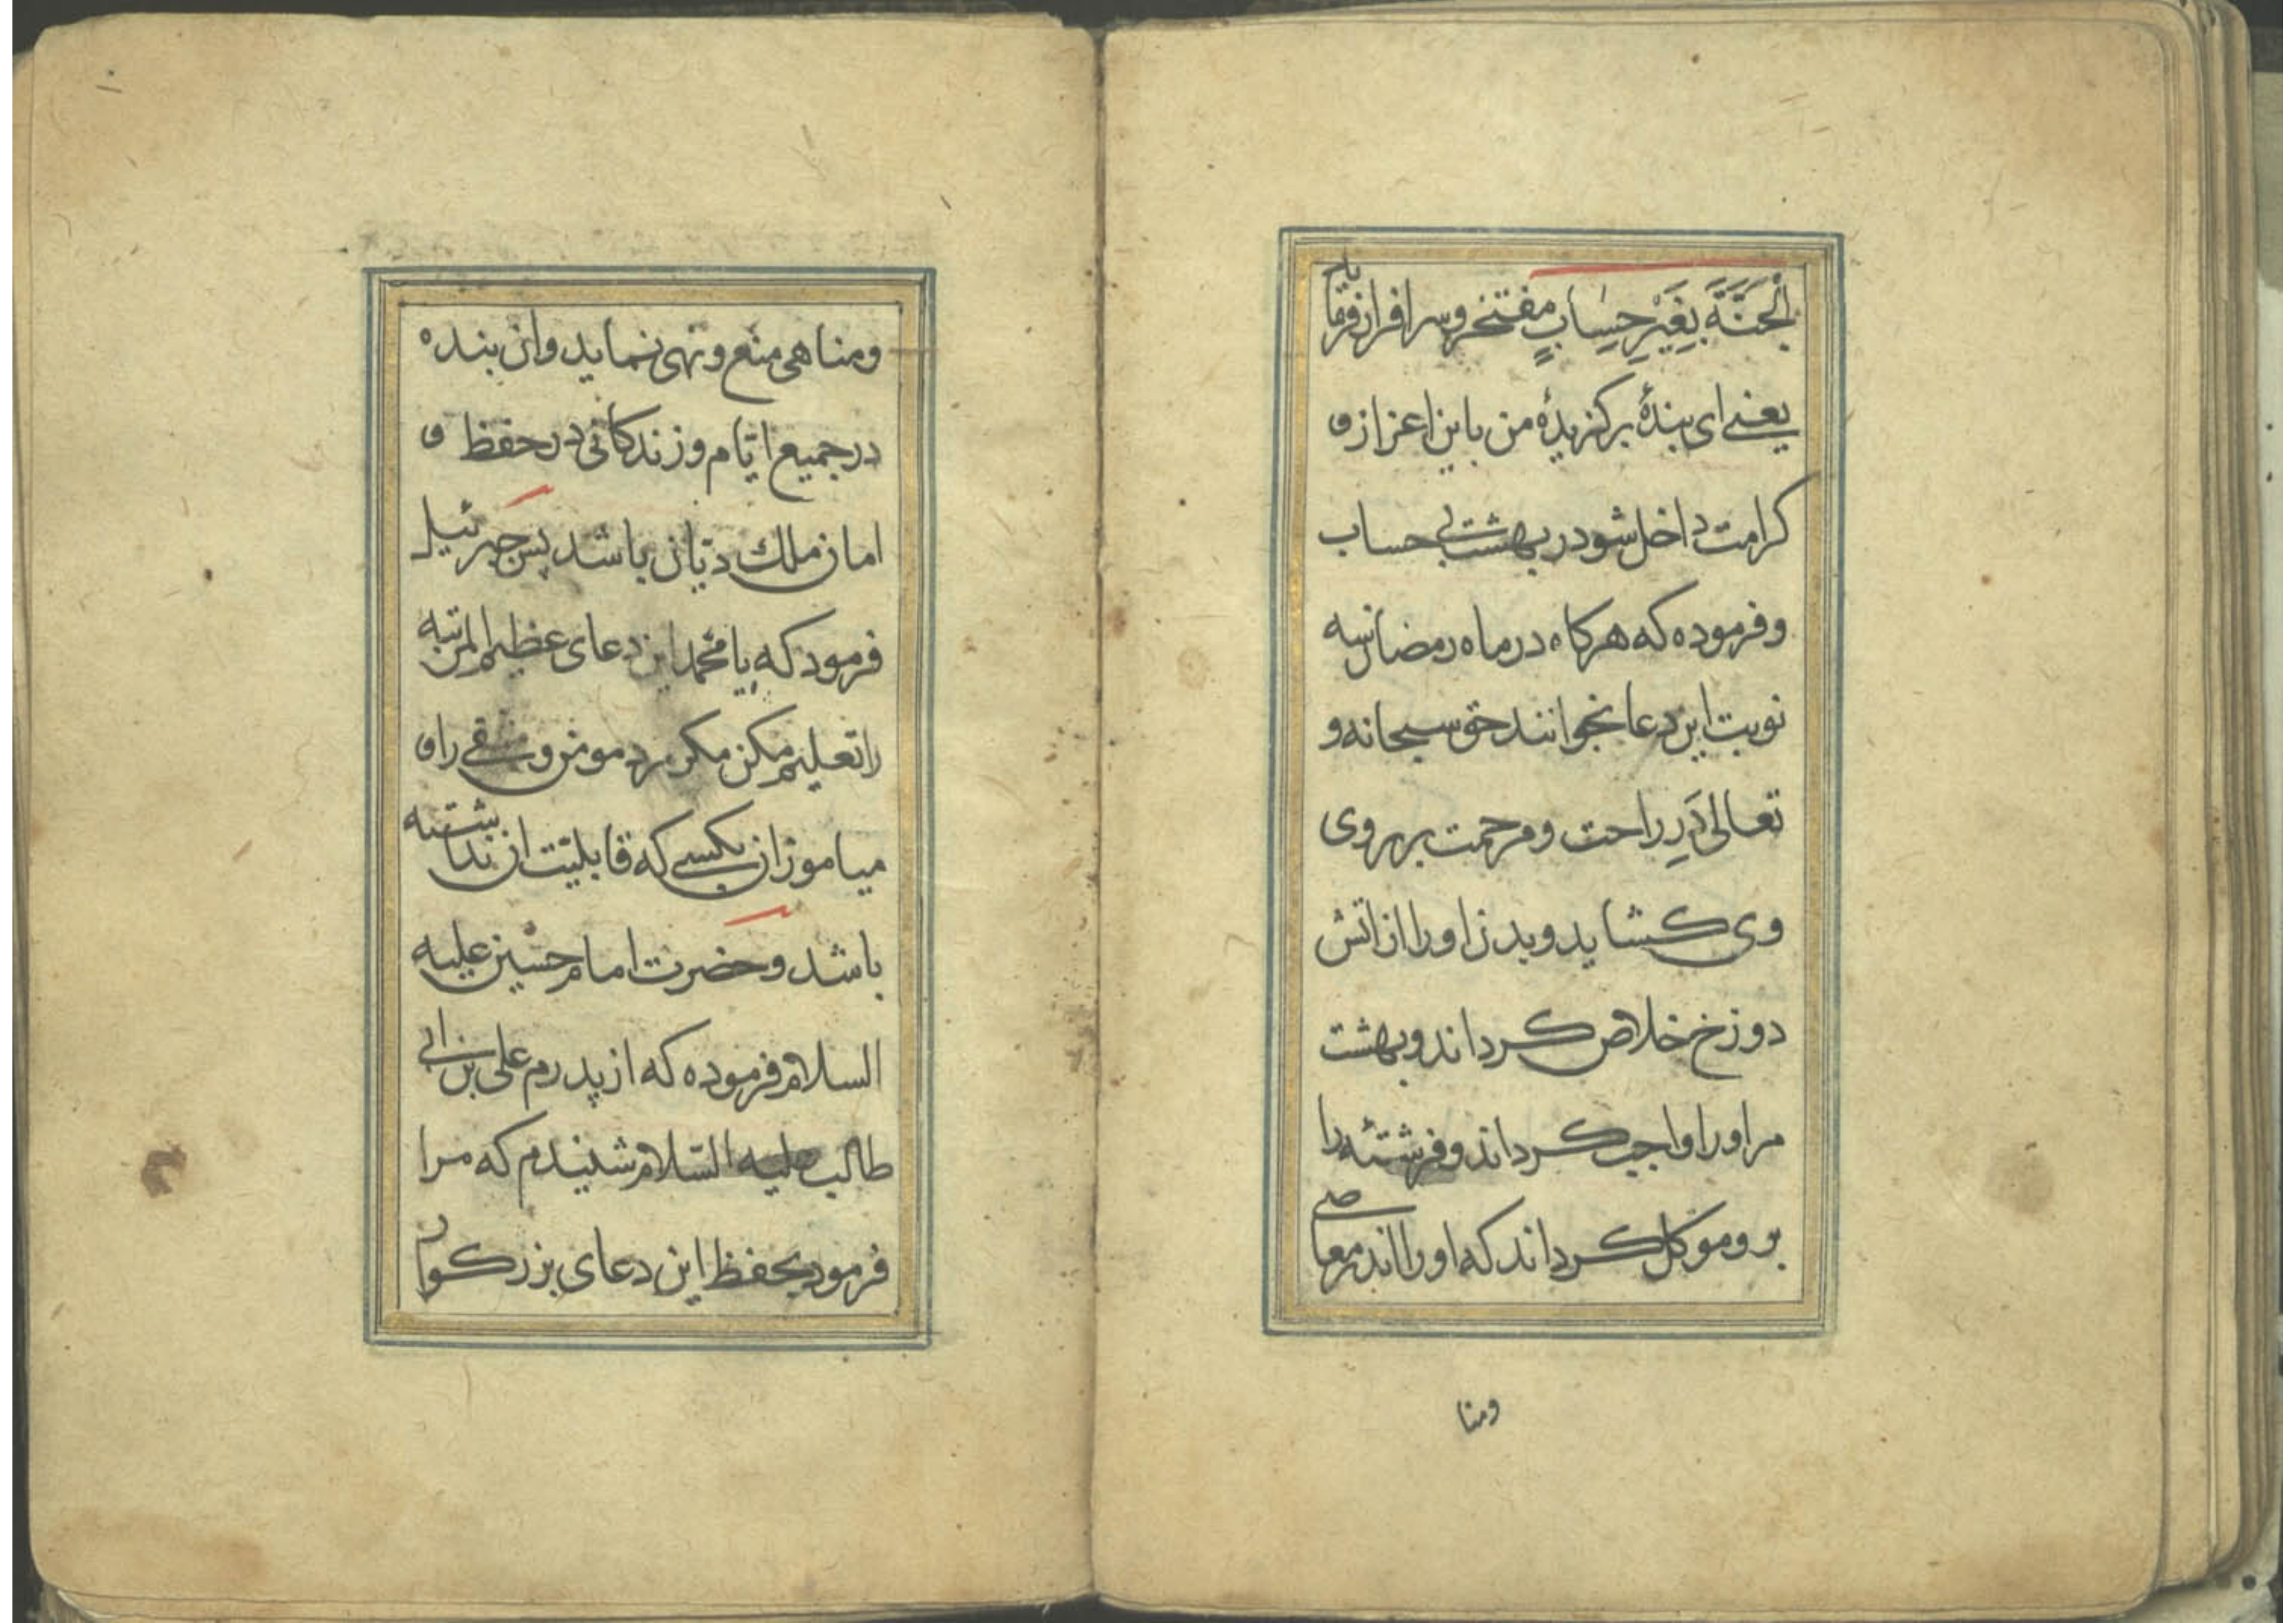 الْجَنَّةَ بِغَيْرِ حِسَابٍ مفتخر و سرافراز فرماید
یعنی ای بندهٔ برکزیدهٔ من باین اعزاز و
کرامت داخل شو در بهشت بی حساب
و فرموده که هرکاه در ماه رمضان سه
نوبت این دعا بخوانند حق سبحانه و
تعالی دَرِ راحت و مرحمت بر روی
وی کشاید و بدن او را از اتش
دوزخ خلاص کرداند و بهشت
مر او را واجب کرداند و فرشتهٔ را
بر و موکل کرداند که او را اندر معاصی
ومنا
و مناهی منع و نهی نماید و ان بنده
در جمیع ایّام و زندکانی در حفظ و
امان ملك دیّان باشد پس جبرئیل
فرمود که یا محمّد این دعای عظیم المرتبه
را تعلیم مکن مکر مرد مومن و متقی را و
میاموزان بکسی که قابلیّت ان نداشته
باشد و حضرت امام حسین علیه
السلام فرموده که از پدرم علی بن ابی
طالب علیه السّلام شنیدم که مرا
فرمود بحفظ این دعای بزرکوار